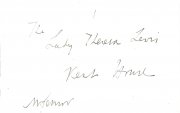 The
Lady Theresa Lewis
Kent House